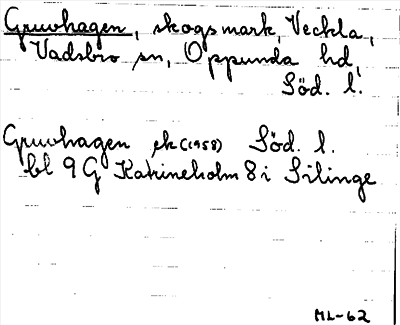 Gruvhagen, skogsmark, Veckla,
Vadsbro sn, Oppunda hd,
Söd. l.
Gruvhagen ek (1958) Söd. l.
bl 9 G Katrineholm 8 i Silinge
ML-62